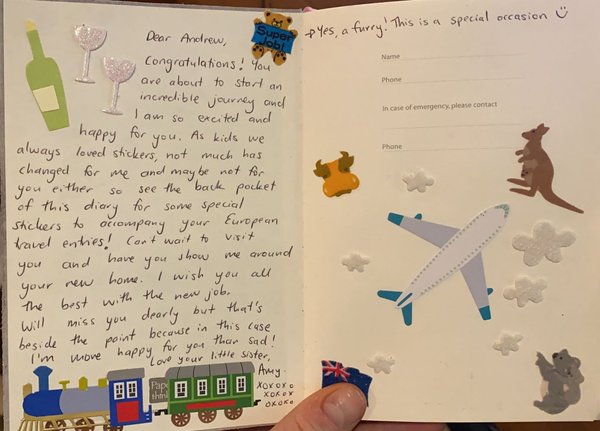 Dear Andrew,
Congratulations! You
are about to start an
incredible journey and
I am so excited and
happy for you. As kids we
always loved stickers, not much has
changed for me and maybe not for
you either so see the back pocket
of this diary for some special
stickers to accompany your European
travel entries! Can't wait to visit
you and have you show me around
your new home. I wish you all
the best with the new job.
Will miss you dearly but that's
beside the point because in this case
I'm more happy for you than sad!
Love your little sister,
Amy.
XOXOXO
XOXOX
OXOXO
Super
Job!
Yes, a furry! This is a special occasion
Name
Phone
In case of emergency, please contact
Phone